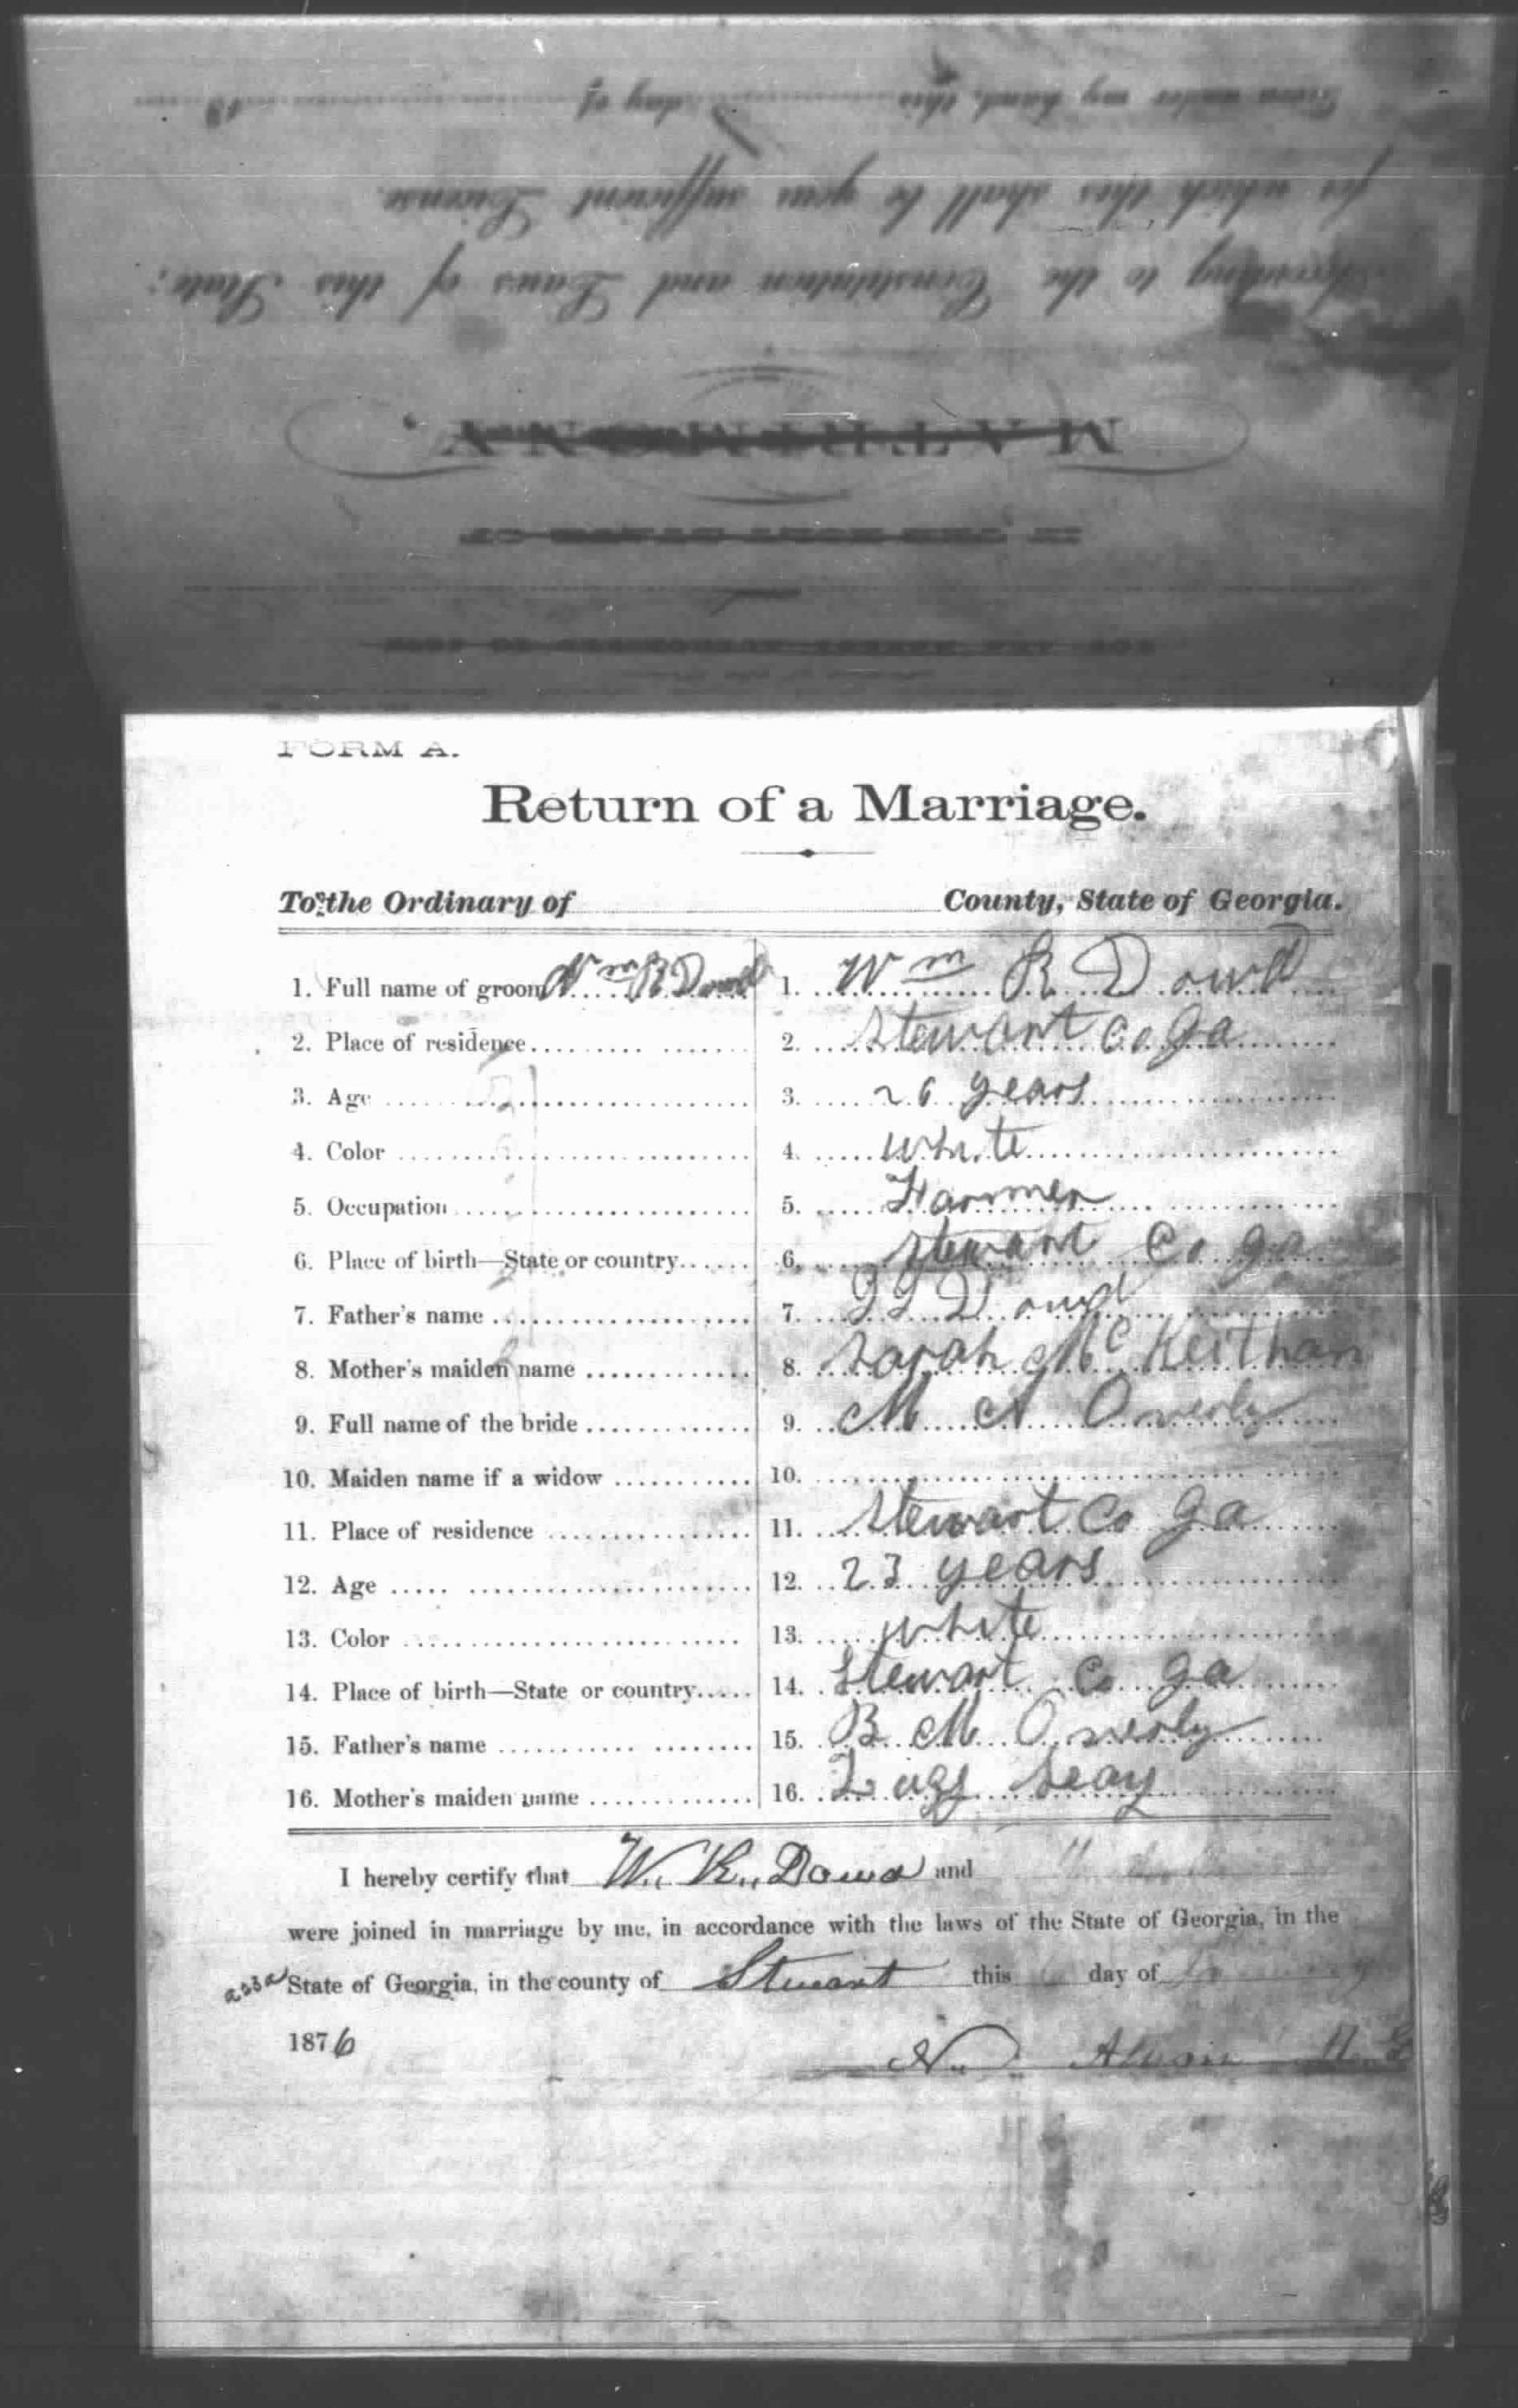 Given under my hand, this day of 18
for which this shall be your sufficient License.
According to the Constitution and Laws of this State;
MATRIMONY,
FORM A.
Return of a Marriage.
To the Ordinary of County, State of Georgia.
1. Full name of groom Wm R Dowd 1. Wm R Dowd
2. Place of residence 2. Stewart Co Ga
3. Age 3. 26 years
4. Color 4. white
5. Occupation 5. Farmer
6. Place of birth—State or country 6. Stewart Co ga
7. Father's name 7. Dowd
8. Mother's maiden name 8. Sarah McKeithan
9. Full name of the bride 9. M A Overly
10. Maiden name if a widow 10.
11. Place of residence 11. Stewart Co Ga
12. Age 12. 23 years
13. Color 13. white
14. Place of birth—State or country 14. Stewart Co ga
15. Father's name 15. B M Overly
16. Mother's maiden name 16. Seay
I hereby certify that W. R. Dowd and
were joined in marriage by me, in accordance with the laws of the State of Georgia, in the
State of Georgia, in the county of Stewart this day of
1876